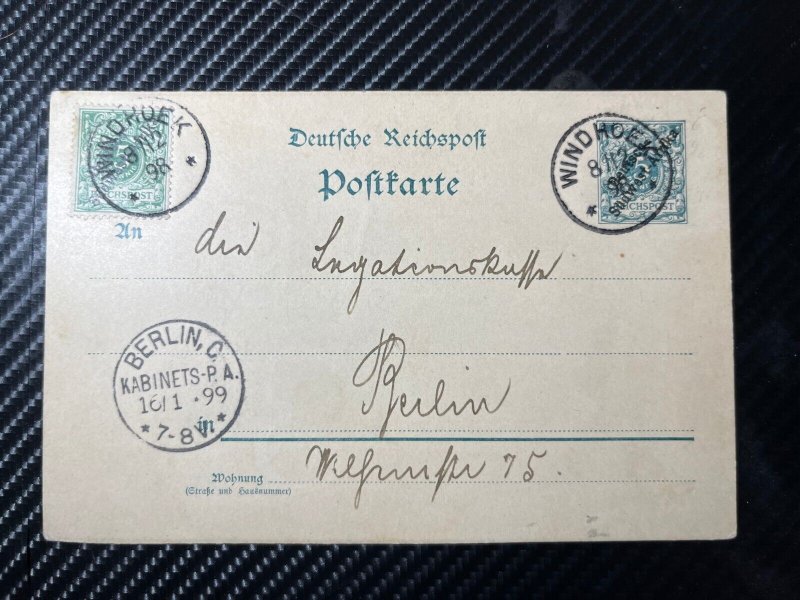 WINDHOEK
8/12
98
REICHSPOST
Deutsche Reichspost
Postkarte
WINDHOEK
8/12
REICHSPOST
An die Legationskasse
BERLIN, C.
KABINETS-P. A.
16/1 99
7-8 V.
in Berlin
Wohnung Wilhelmstr 75.
(Straße und Hausnummer)